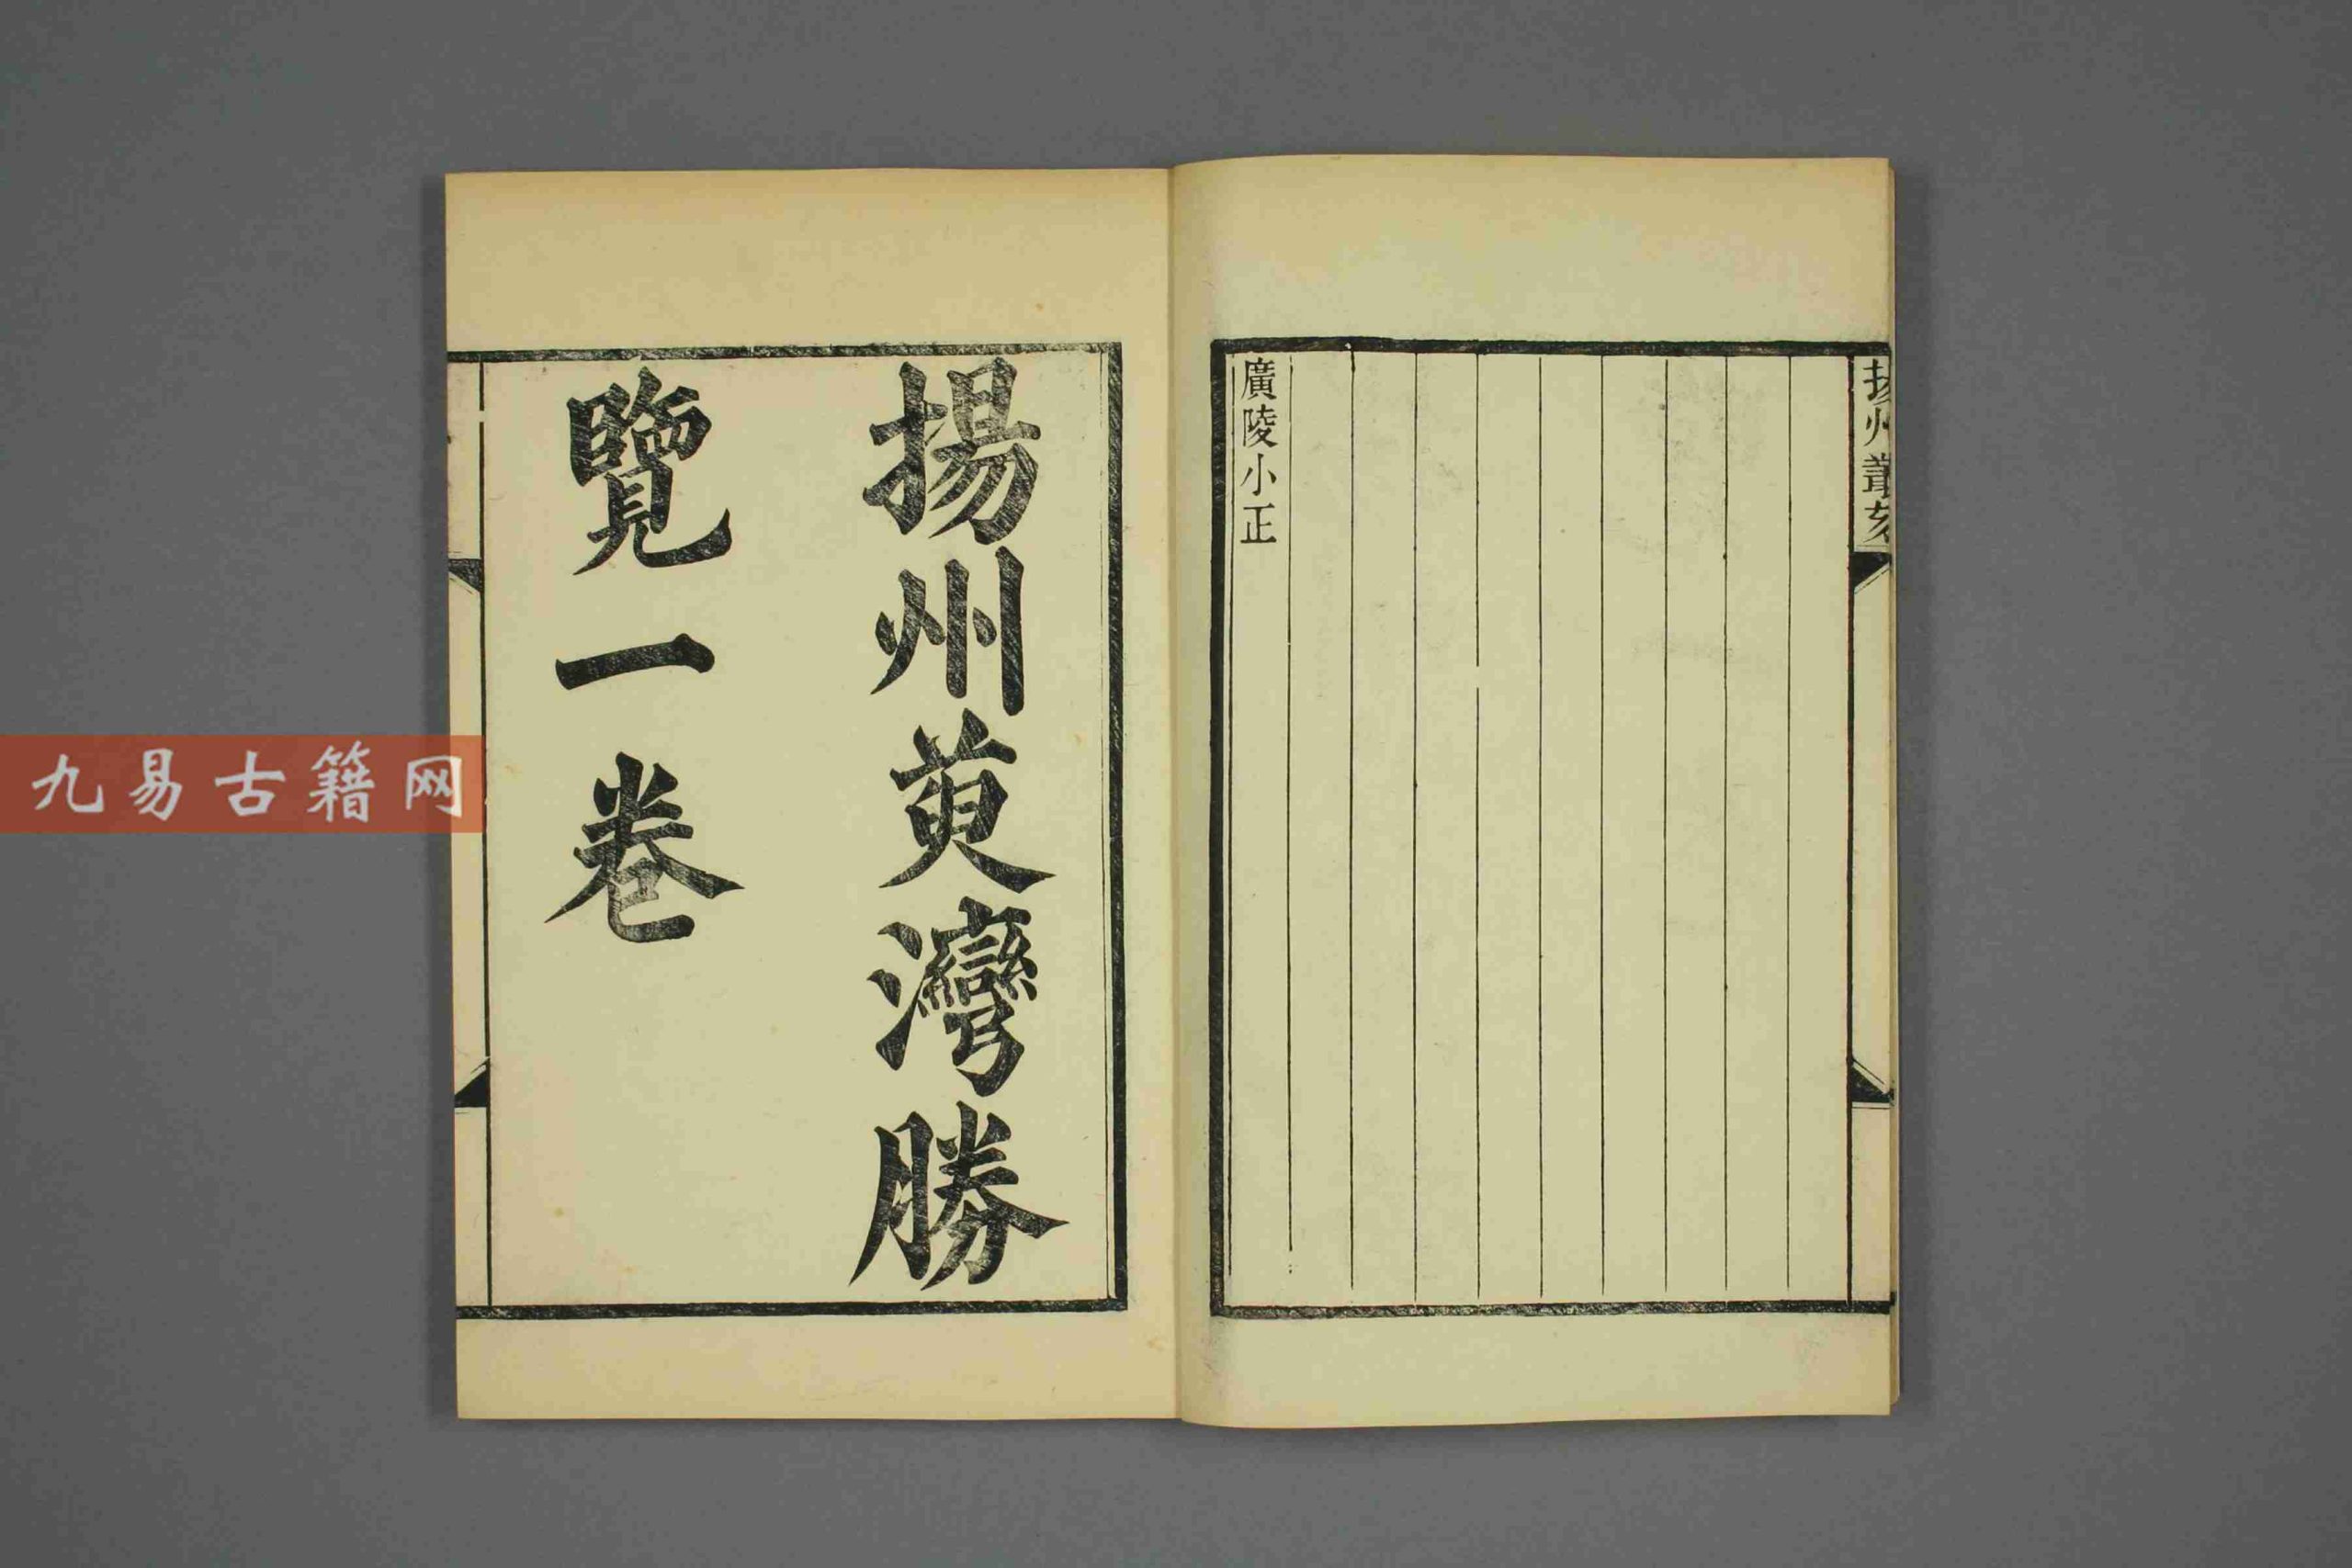 揚州叢刻
廣陵小正
揚州茰灣勝
覽一卷
九易古籍网